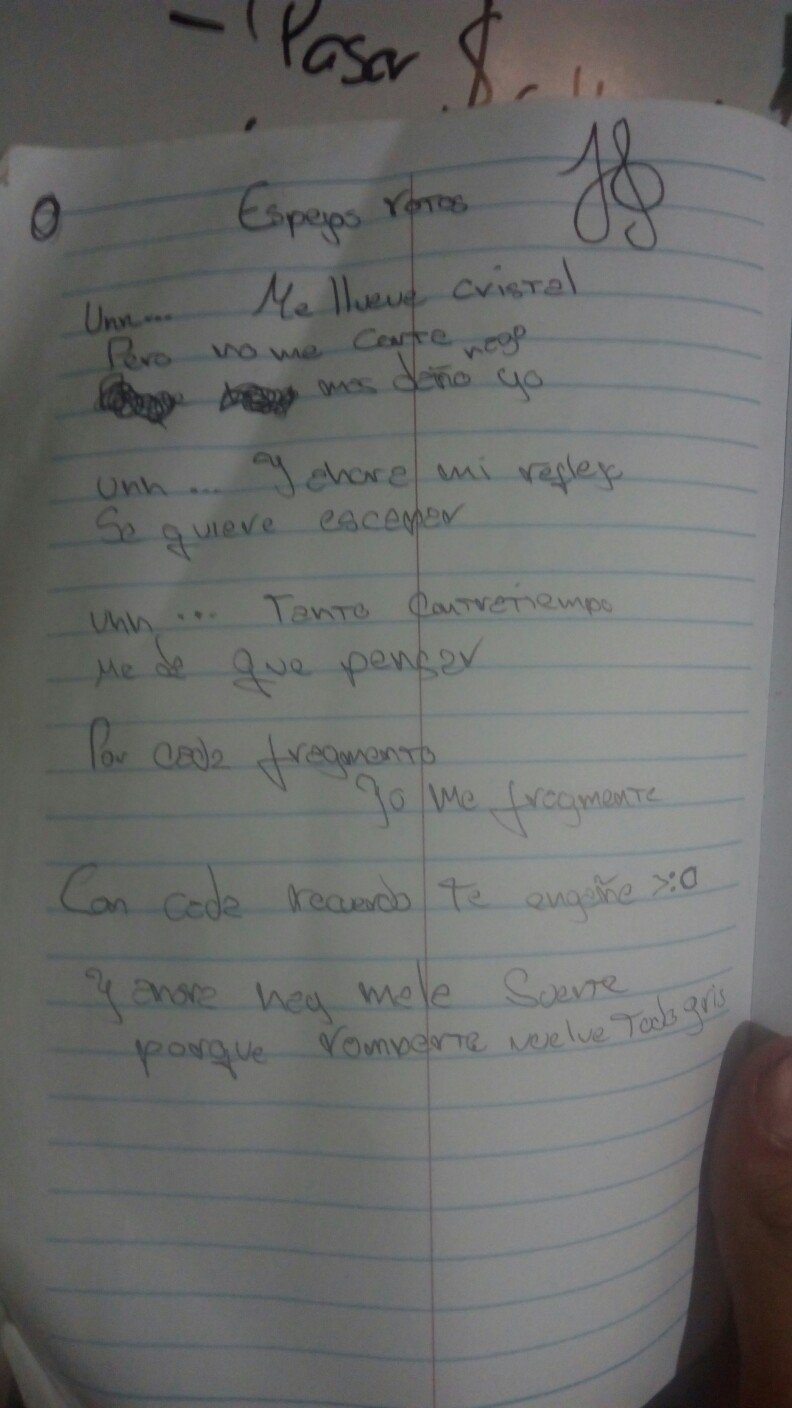 - Pasar
Espejos rotos
Unn... Me llueve cristal
Pero no me corte
mas daño yo
Unn... Y ahora mi reflejo
Se quiere escapar
Unn... Tanto contratiempo
Me da que pensar
Por cada fragmento
Yo me fragmente
Con cada recuerdo te engañe >:O
Y ahora hay mala Suerte
porque romperte vuelve todo gris